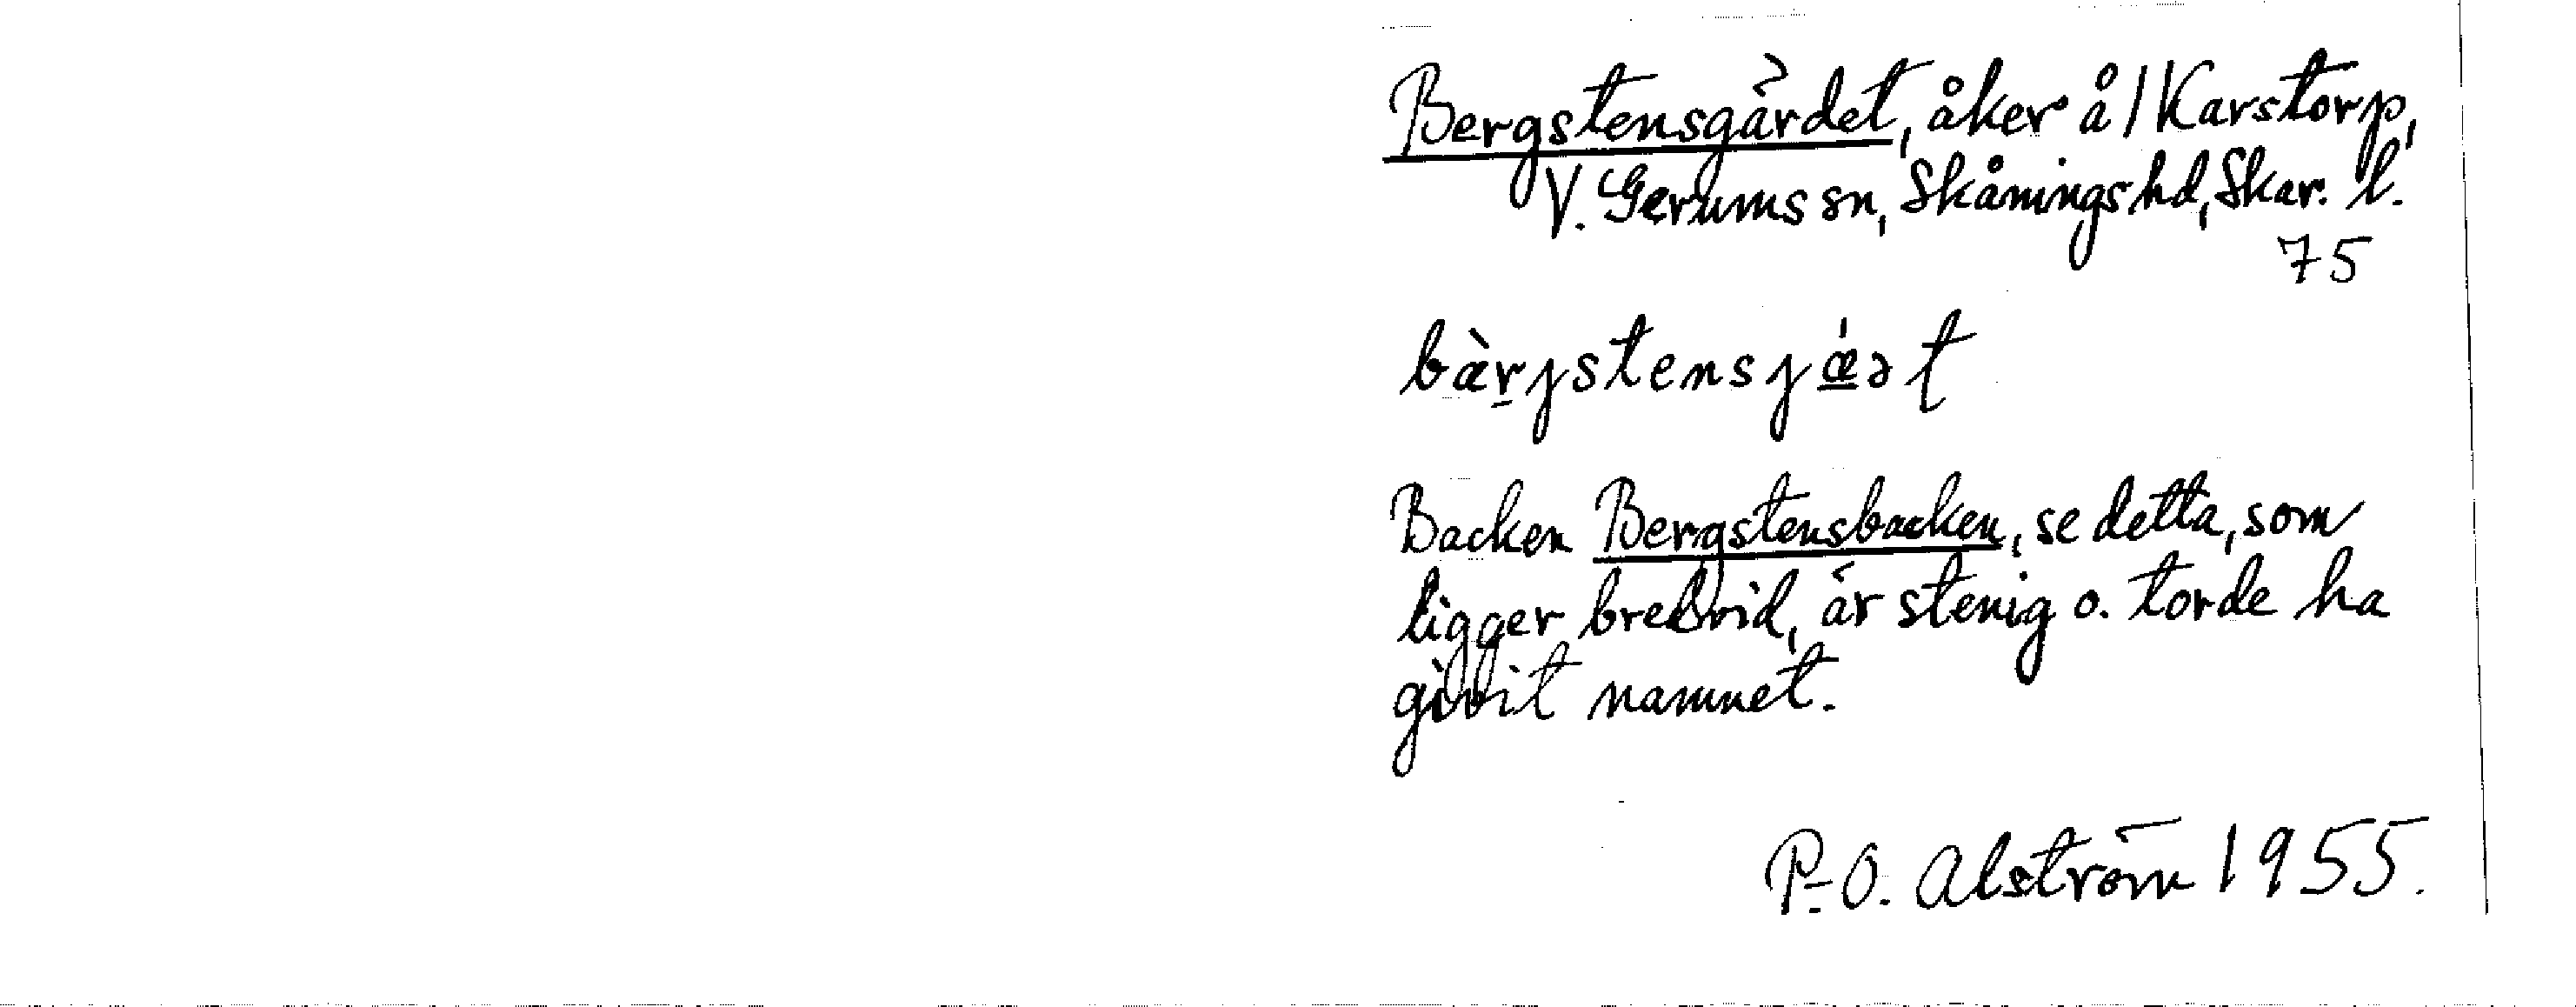 Bergstensgärdet, åker å 1 Karstorp,
V. Gerums sn, Skånings hd, Skar. l.
75
bæ̀r̠jstensjǽət
Backen Bergstensbacken, se detta, som
ligger bredvid, är stenig o. torde ha
givit namnet.
P.-O. Alström 1955.